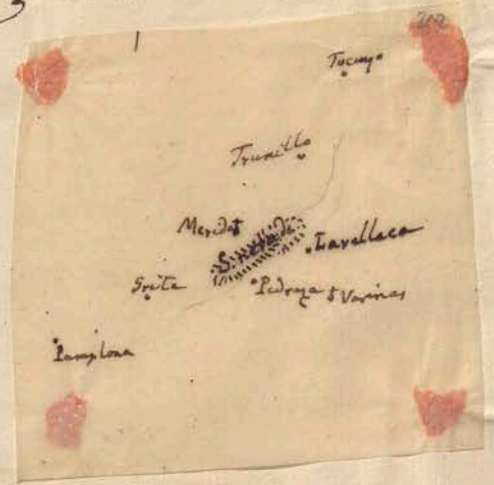 202
Tucuyo
Truxillo
Merida
Sierra de
Lavellaca
Grita
Pedraza
Varinas
Pamplona